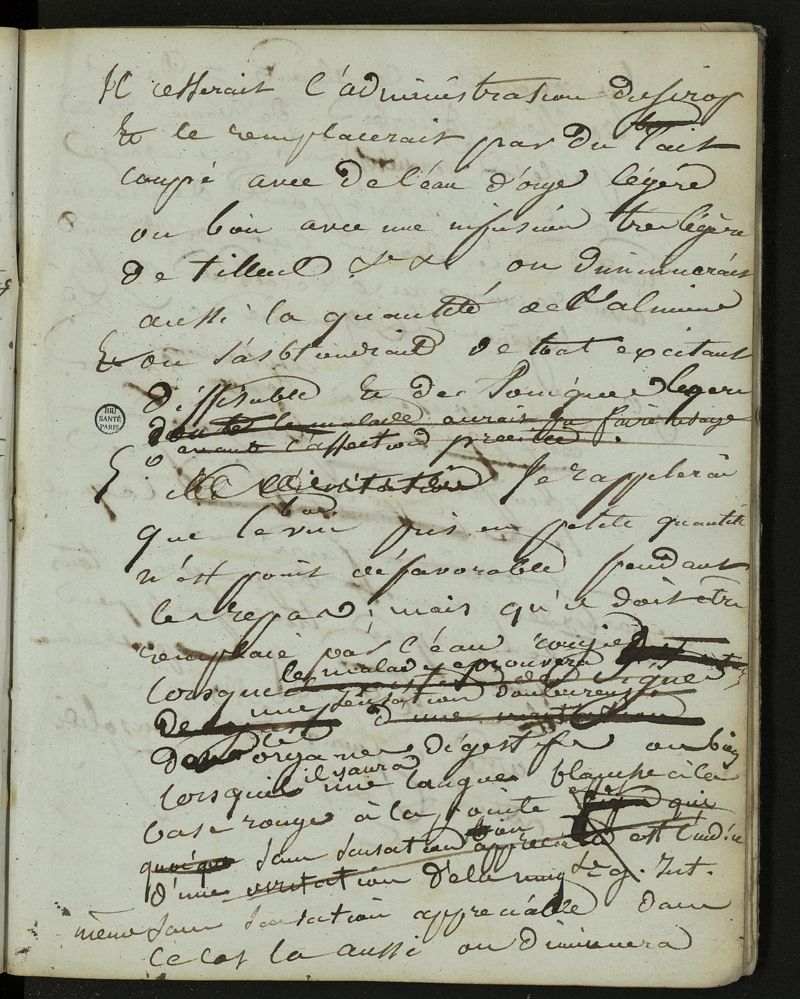 Il cesserait l'administration du sirop
Et le remplacerait par du lait
coupé avec de l'eau d'orge légère
ou bien avec une infusion tres légère
de tilleul &c & on diminuerait
aussi la quantité de l'alimens
Et on s'abstiendrait de tout excitant
diffusible Et des toniques légers
dont le malade aurait pu faire usage
avant l'affection présente.
BIU
SANTÉ
PARIS
Je rappelerai
que le vin bon pris en petite quantité
n'est point défavorable pendant
les repas; mais qu'il doit être
remplacé par l'eau rougie
lorsque les malades eprouvera
une sensation douloureuse
de d'une
dans les organes digestifs ou bien
lorsqu'il y aura une langue blanche à la
base rouge à la pointe qui
quoique sans sensation est l'indice
d'une irritation de la muq g. Int.
même sans sensation appreciable dans
ce cas la aussi on diminuera